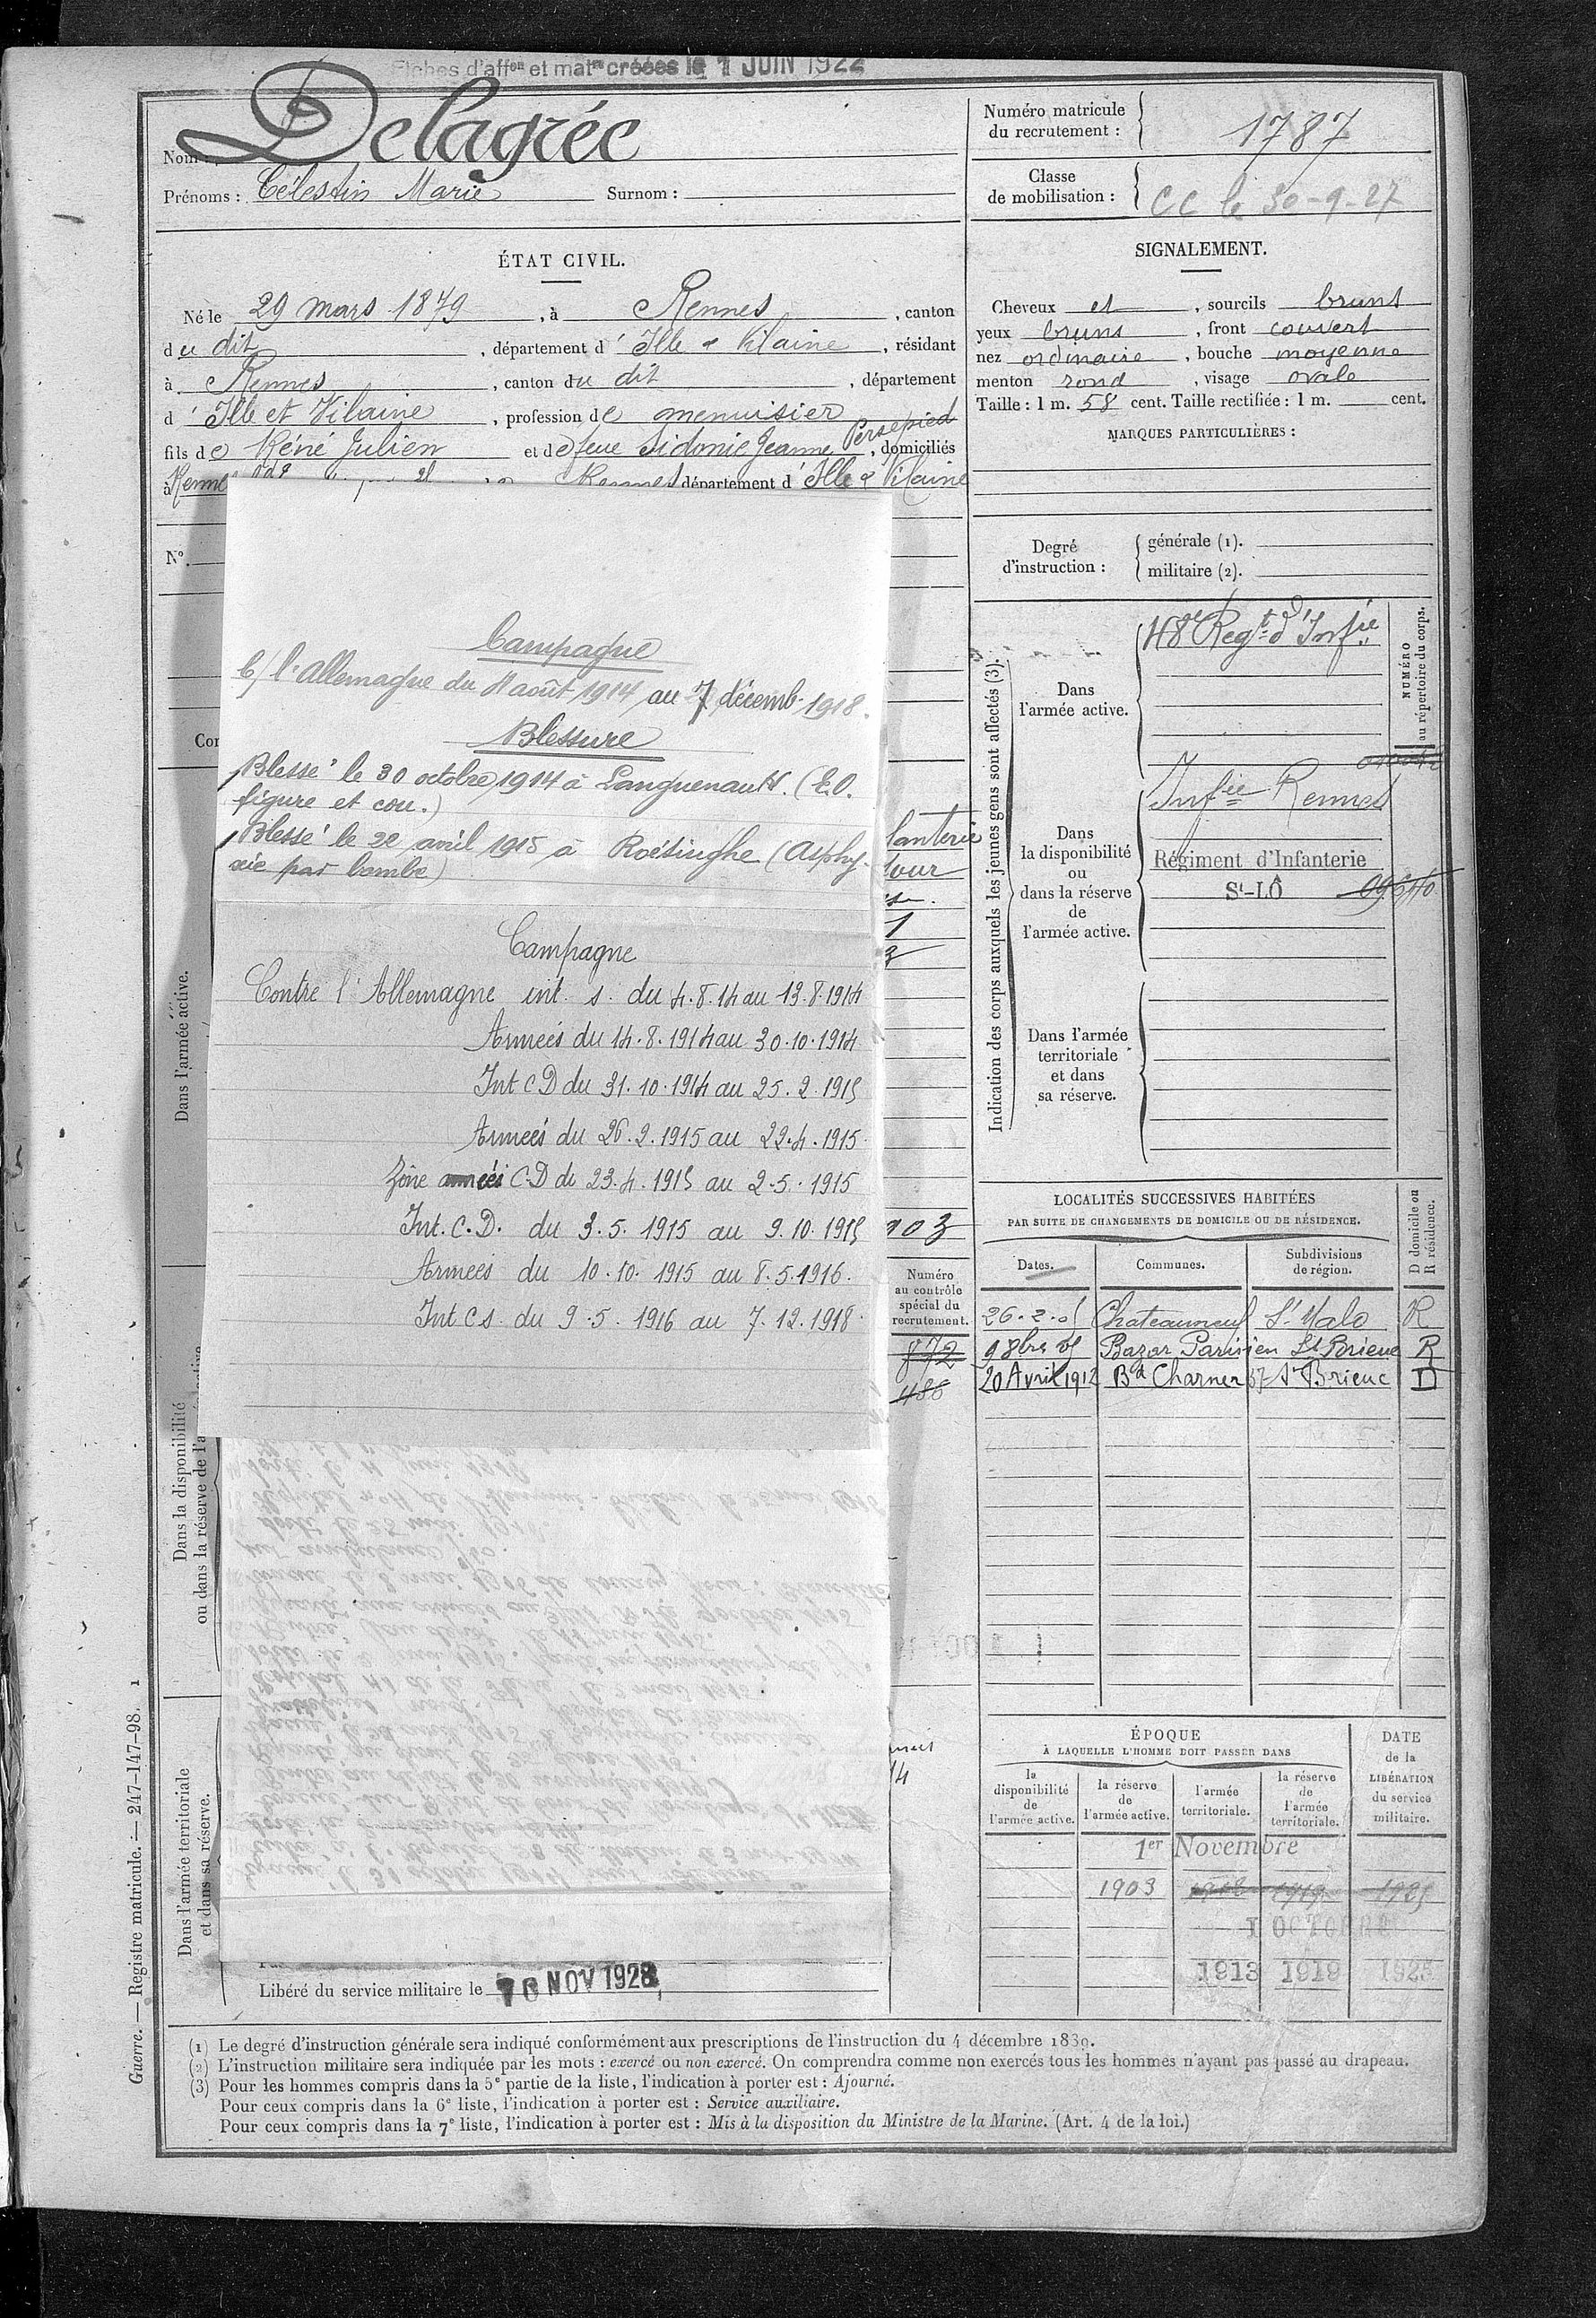 Fiches d'affon et matre créées le 1 JUIN 1922
Nom : Delagrée
Prénoms : Célestin Marie Surnom :
Numéro matricule du recrutement : 1787
Classe de mobilisation : CC le 30-9-27
ÉTAT CIVIL.
Né le 29 mars 1879, à Rennes, canton
du dit, département d'Ille & Vilaine, résidant
à Rennes, canton du dit, département
d'Ille et Vilaine, profession de menuisier
fils de Réné Julien et de feue Sidonie Jeanne Persepied, domiciliés
à Rennes Rennes département d'Ille & Vilaine
N°
SIGNALEMENT.
Cheveux et, sourcils bruns
yeux bruns, front couvert
nez ordinaire, bouche moyenne
menton rond, visage ovale
Taille : 1 m. 58 cent. Taille rectifiée : 1 m. cent.
MARQUES PARTICULIÈRES :
Degré d'instruction : générale (1).
militaire (2).
Campagne
C/ l'Allemagne du 4 août 1914 au 7 décemb. 1918.
Blessure
Blessé le 30 octobre 1914 à (E.O.
figure et cou.)
Blessé le 22 avril 1915 à Roésinghe (Asphy-
xie par bombe)
Campagne
Contre l'Allemagne int. s. du 4.8.14 au 13.8.1914
Armées du 14.8.1914 au 30.10.1914
Int CD du 31.10.1914 au 25.2.1915
Armées du 26.2.1915 au 22.4.1915
Zône armées C.D du 23.4.1915 au 2.5.1915
Int. C.D. du 3.5.1915 au 9.10.1915
Armées du 10.10.1915 au 8.5.1916.
Int CS. du 9.5.1916 au 7.12.1918.
Dans l'armée active.
Dans la disponibilité
ou dans la réserve de l'a
Dans l'armée territoriale
et dans sa réserve.
903
Numéro
au contrôle
spécial du
recrutement.
872
486
Libéré du service militaire le 10 NOV 1928
Indication des corps auxquels les jeunes gens sont affectés (3).
NUMÉRO
au répertoire du corps.
Dans
l'armée active.
48e Regt d'Infie
Dans
la disponibilité
ou
dans la réserve
de
l'armée active.
Infie Rennes
Régiment d'Infanterie
St-LÔ
Dans l'armée
territoriale
et dans
sa réserve.
LOCALITÉS SUCCESSIVES HABITÉES
PAR SUITE DE CHANGEMENTS DE DOMICILE OU DE RÉSIDENCE.
D domicile ou
R résidence.
Dates. Communes. Subdivisions de région.
26.2.05 Chateauneuf St Malo R
9 8bre 05 Bazar Parisien St Brieuc R
20 Avril 1912 Bd Charner 37 St Brieuc D
ÉPOQUE
À LAQUELLE L'HOMME DOIT PASSER DANS
la
disponibilité
de
l'armée active.
la réserve
de
l'armée active.
l'armée
territoriale.
la réserve
de
l'armée
territoriale.
DATE
de la
LIBÉRATION
du service
militaire.
1er Novembre
1903 1919 1925
1 OCTOBRE
1913 1919 1925
Guerre. — Registre matricule. — 247-147-98. 1
(1) Le degré d'instruction générale sera indiqué conformément aux prescriptions de l'instruction du 4 décembre 1889.
(2) L'instruction militaire sera indiquée par les mots : exercé ou non exercé. On comprendra comme non exercés tous les hommes n'ayant pas passé au drapeau.
(3) Pour les hommes compris dans la 5e partie de la liste, l'indication à porter est : Ajourné.
Pour ceux compris dans la 6e liste, l'indication à porter est : Service auxiliaire.
Pour ceux compris dans la 7e liste, l'indication à porter est : Mis à la disposition du Ministre de la Marine. (Art. 4 de la loi.)